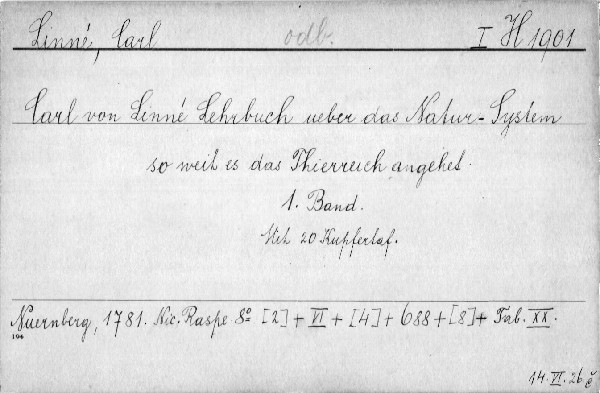 Linné, Carl odb. I H 1901
Carl von Linné Lehrbuch ueber das Natur-System
so weit es das Thierreich angehet.
1. Band.
Mit 20 Kupfertaf.
Nuernberg, 1781. Nic. Raspe. 8º [2] + VI + [4] + 688 + [8] + Tab. XX.
194
14. VI. 26 č